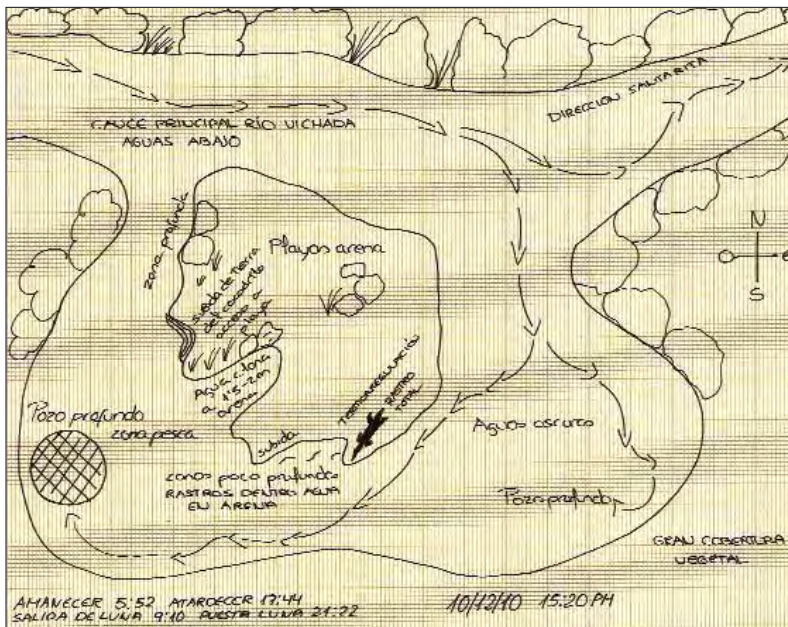 CAUCE PRINCIPAL RÍO VICHADA
AGUAS ABAJO
DIRECCION SANTARITA
N
O
e
S
zona profunda
Playas arena
subida de tierra
del cocodrilo
acceso a
Playa
Agua clara
a 1'5-2m
arena
TERMORREGULACIÓN
RASTRO
TOTAL
Pozo profundo
zona pesca
subida
zonas poco profundas
RASTROS DENTRO AGUA
EN ARENA
Aguas oscuras
Pozo profundo
GRAN COBERTURA
VEGETAL
AMANECER 5:52 ATARDECER 17:44
SALIDA DE LUNA 9:10 PUESTA LUNA 21:22
10/12/10 15:20 PM